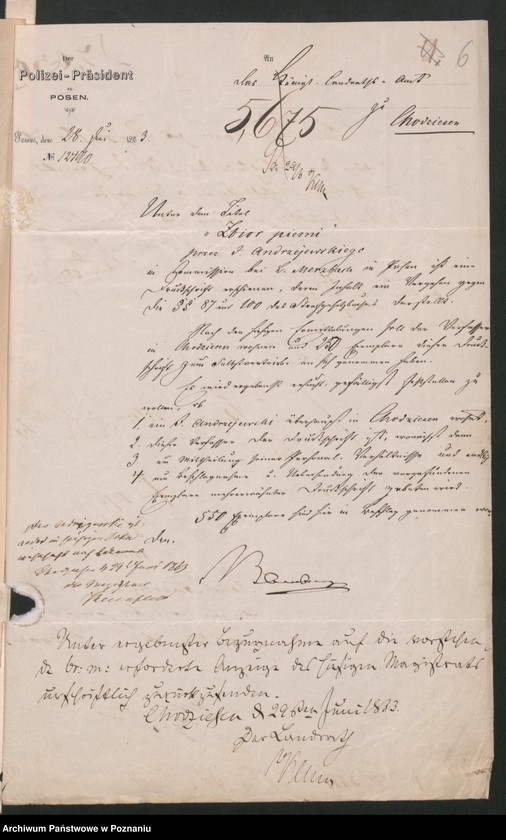 6
Der
Polizei-Präsident
zu
POSEN.
An
das Königl. Landraths-Amt
zu
Chodziesen
5,675
Posen, den 28. Juni 1863.
№ 12480
Unter dem Titel
"Zbior piesni"
przez J. Andrzejewskiego
in Commission bei L. Merzbach in Posen ist eine
Druckschrift erschienen, deren Inhalt ein Vergehen gegen
die §§ 87 und 100 des Strafgesetzbuches darstellt.
Nach den hiesigen Ermittelungen soll der Verfasser
in Chodziesen wohnen und 250 Exemplare dieser Druck-
schrift zum Selbstvertriebe an sich genommen haben.
Es wird ergebenst ersucht, gefälligst feststellen zu
wollen, ob
1, ein J. Andrzejewski überhaupt in Chodziesen wohnt,
2, dieser Verfasser der Druckschrift ist, wonächst dann
3, um Mittheilung seiner Personal-Verhältnisse und endlich
4, um Beschlagnahme u. Uebersendung der vorgefundenen
Exemplare mehrerwähnter Druckschrift gebeten wird.
550 Exemplare sind hier in Beschlag genommen worden.
Der Andrzejewski ist
Chodziesen d 29 Juni 1863
der Magistrat
Unter ergebenster Bezugnahme auf die vorstehen-
de br: m: erforderte Anzeige des hiesigen Magistrats
urschriftlich zurückzusenden.
Chodziesen d 29ten Juni 1863.
Der Landrath
Archiwum Państwowe w Poznaniu
szukajwarchiwach.gov.pl